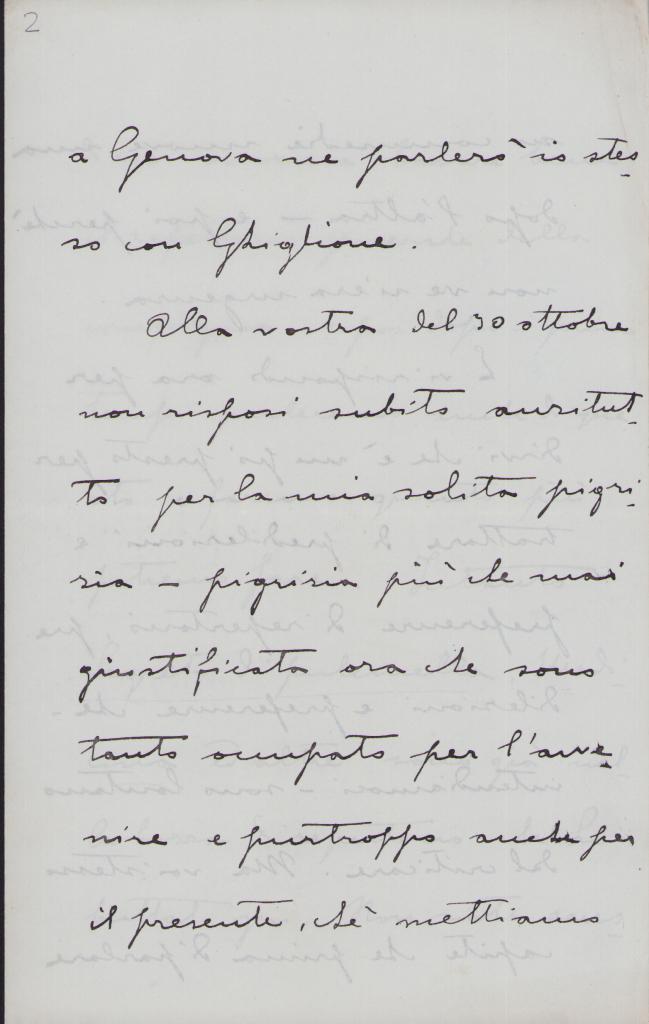 2
a Genova ne parlerò io stes-
so con Ghiglione.
Alla vostra del 30 ottobre
non risposi subito anzitut-
to per la mia solita pigri-
zia – pigrizia più che mai
giustificata ora che sono
tanto occupato per l'avve-
nire e purtroppo anche per
il presente, chè mettiamo